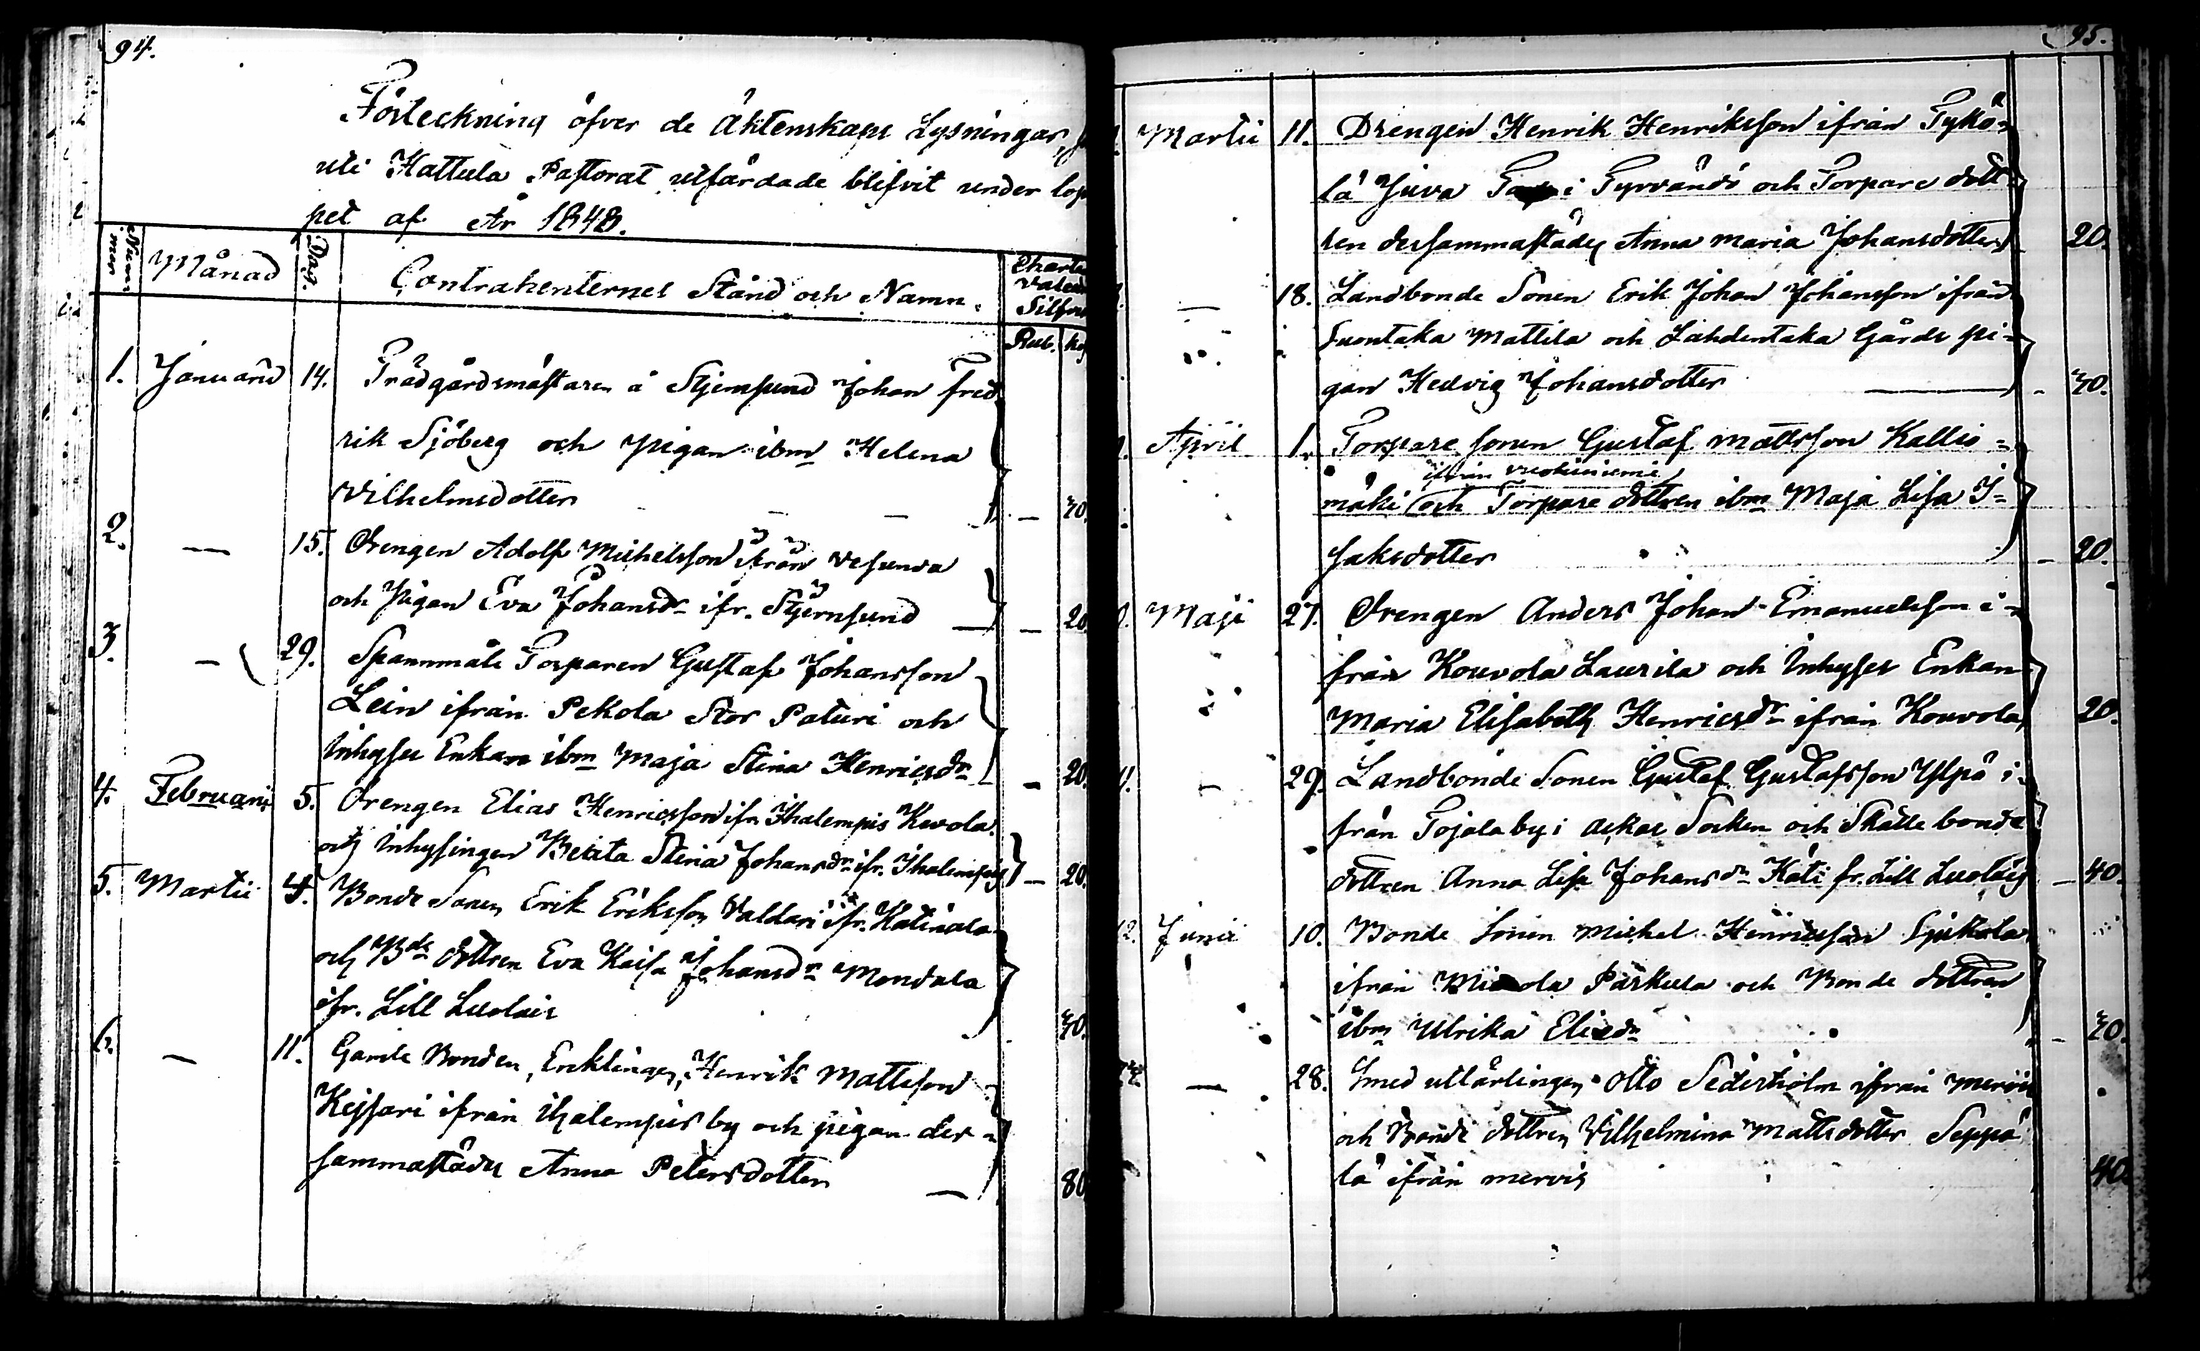 94.
Förteckning öfver de Äktenskaps Lysningar,
uti Hattula Pastorat utfärdade blifvit under lop
pet af År 1848.
Num
mer
Månad
Dag.
Contrahenternes Stånd och Namn.
Charta
Valeur
Silfver
Rub. kop
1. Januarii 14. Trädgårdsmästaren å Stjernsund Johan Fred
rik Sjöberg och pigan ibm Helena
Vilhelmsdotter — — — 70
2. — 15. Drengen Adolf Michelsson ifrån Vesunda
och Pigan Eva Johansdr ifr. Stjernsund — — 20
3. — 29. Spannmåls Torparen Gustaf Johansson
Lein ifrån Pekola Stor Paturi och
Inhyses Enkan ibm Maja Stina Henricsdr — 20
4. Februarii 5. Drengen Elias Henricsson ifr. Ihalempis Kevola
och Inhysingen Beata Stina Johansdr ifr. Ihalempis — 20
5. Martii 4. Bonde Sonen Erik Eriksson Valdari ifr. Katinala
och Bde dottren Eva Kaisa Johansdr Mondala
ifr. Lill Luolais 70
6. — 11. Gamle Bonden, Encklingen, Henrik Mattsson
Kejsari ifrån ihalempis by och pigan der-
sammastädes Anna Petersdotter — 80
95.
Martii 11. Drengen Henrik Henriksson ifrån Tykö-
lä Juva i Tyrvändö och Torpare dott-
ren dersammastädes Anna Maria Johansdotter 20.
— 18. Landbonde Sonen Erik Johan Johansson ifrån
Suontaka Mattila och Lahdentaka Gårds pi-
gan Hedvig Johansdotter — - 70.
April 1. Torpare sonen Gustaf Mattsson Kallio-
ifrån
mäki och Torpare dottren ibm Maja Lisa I-
saksdotter — 20.
Maji 27. Drengen Anders Johan Emanuelsson i-
från Kouvola Laurila och Inhyses Enkan
Maria Elisabeth Henricsdr ifrån Kouvola 20.
11. — 29. Landbonde Sonen Gustaf Gustafsson Yspä i-
från Tojala by i Ackas Socken och Skatte bonde
dottren Anna Lisa Johansdr Käti fr. Lill Luolais — 40.
12. Junii 10. Bonde Sonen Michel Henricsson
ifrån Parkula och Bonde dottren
ibm Ulrika Eliedr — 70.
— 28. Smed utlärlingen Otto Sederholm ifrån Mervis
och Bonde dottren Vilhelmina Mattsdotter Seppä
lä ifrån mervis 40.